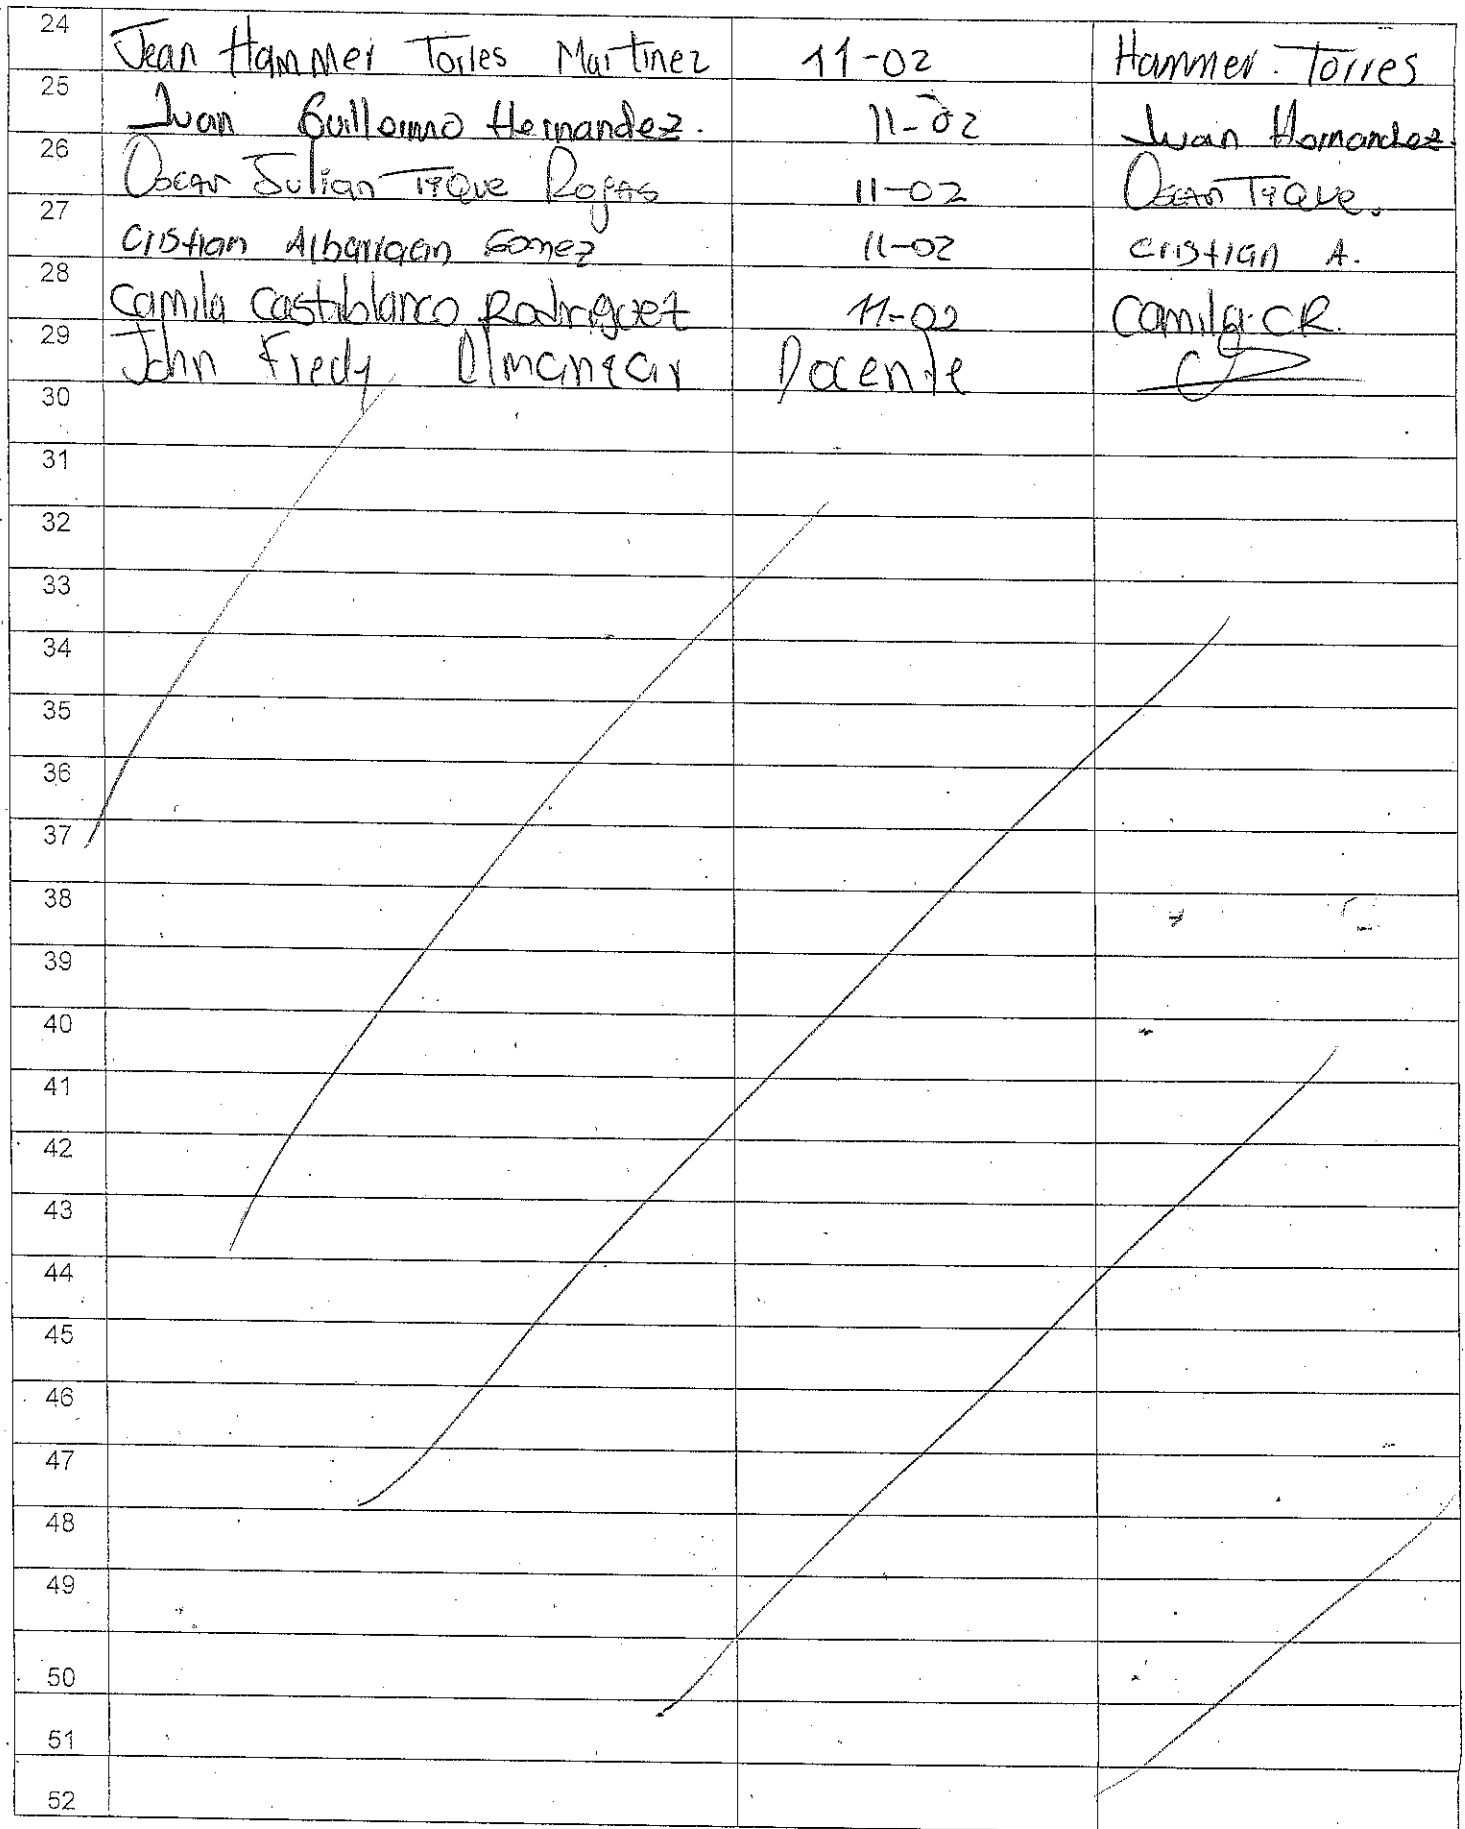 24 Jean Hammer Torres Martinez 11-02 Hammer. Torres
25 Juan Guillermo Hernandez. 11-02 Juan Hernandez.
26 Oscar Julian Tique Rojas 11-02 Oscar Tique.
27 Cristian Albarracin Gomez 11-02 Cristian A.
28 Camila Castiblanco Rodriguez 11-02 Camila CR.
29 John Fredy Almanzar Docente
30
31
32
33
34
35
36
37
38
39
40
41
42
43
44
45
46
47
48
49
50
51
52